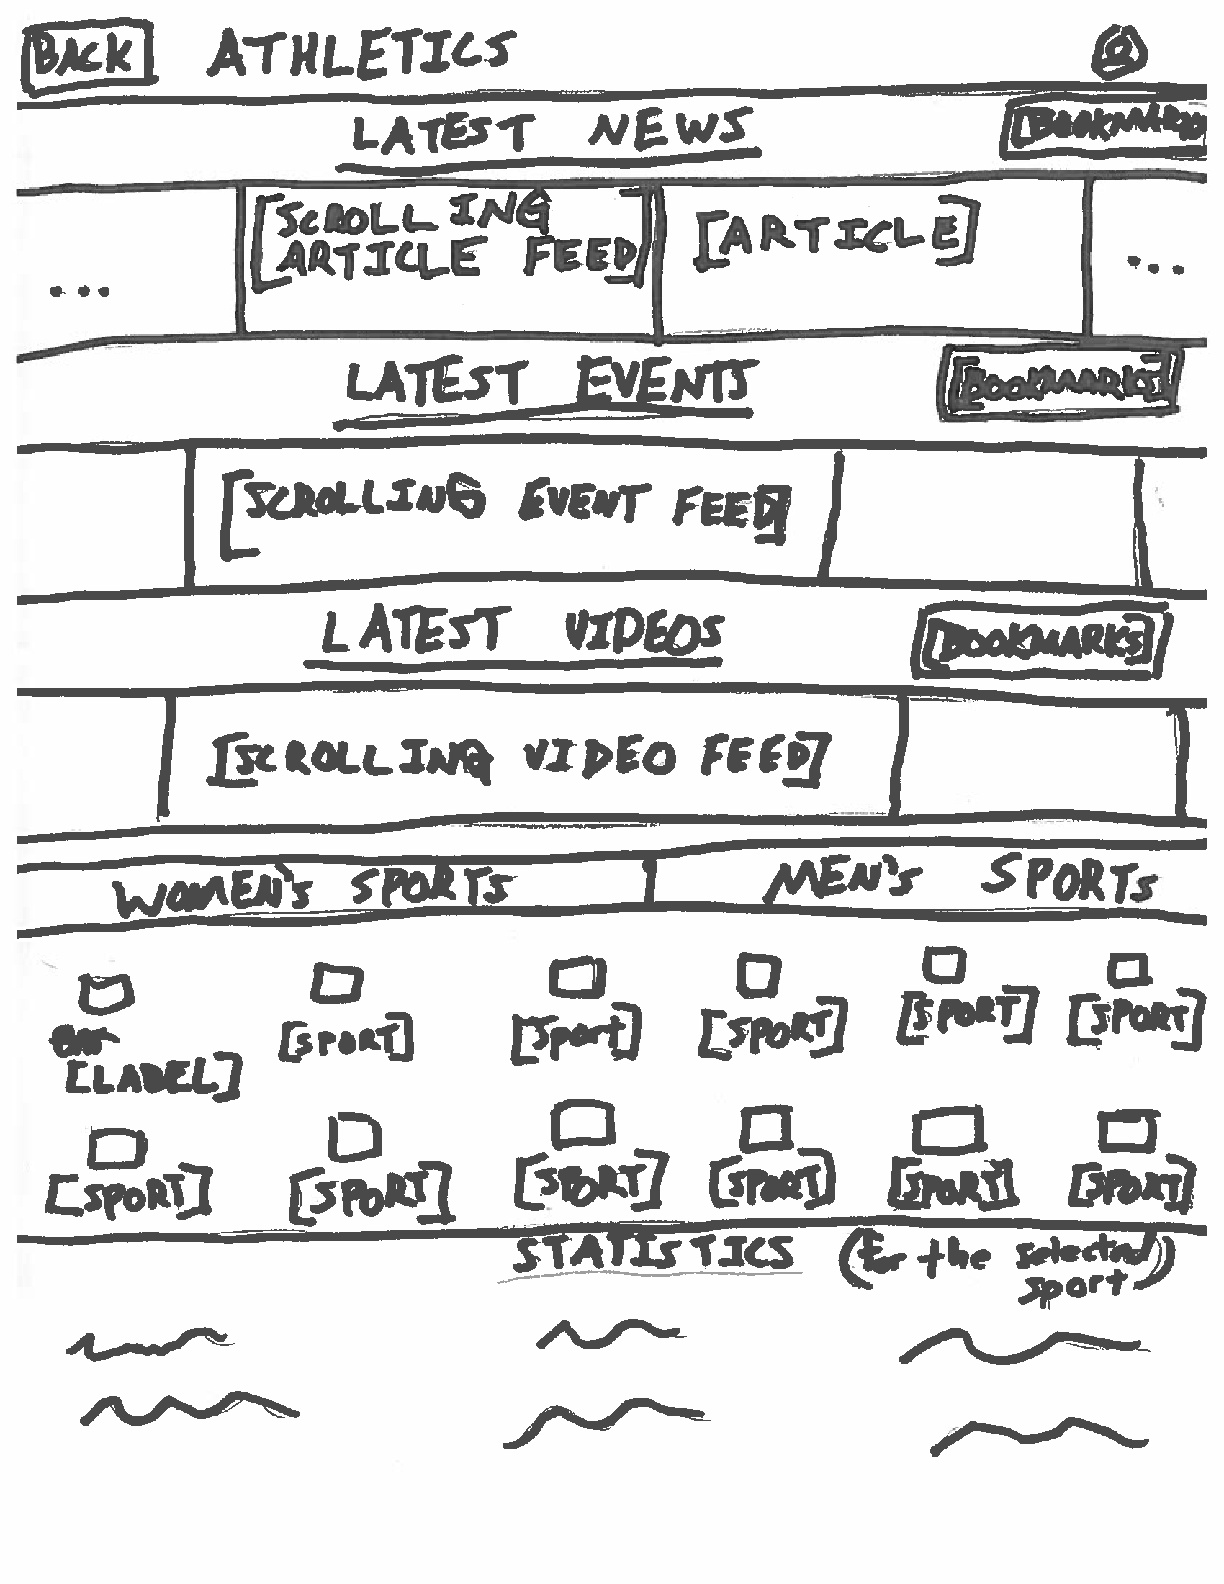 BACK ATHLETICS
LATEST NEWS [BOOKMARKS
[SCROLLING
ARTICLE FEED] [ARTICLE]
... ...
LATEST EVENTS [BOOKMARKS]
[SCROLLING EVENT FEED]
LATEST VIDEOS [BOOKMARKS]
[SCROLLING VIDEO FEED]
WOMEN'S SPORTS MEN'S SPORTS
[SPORT] [Sport] [SPORT] [SPORT] [SPORT]
[LABEL]
[SPORT] [SPORT] [SPORT] [SPORT] [SPORT] [SPORT]
STATISTICS (For the selected
sport)